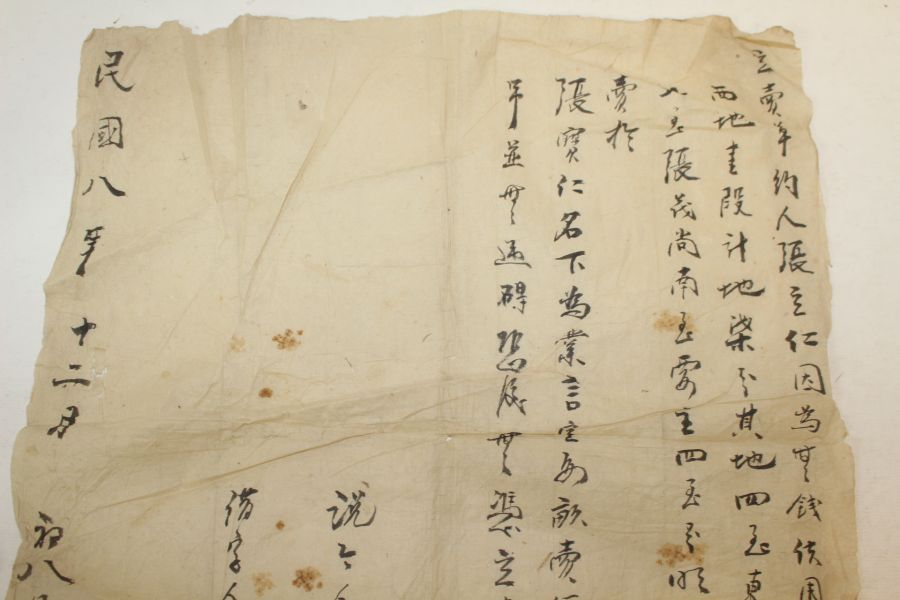 立賣軍約人張立仁因為無錢使用
西地壹段計地柒分其地四至東
至張茂尚南至賣主四至分明
賣於
張寶仁名下為業言定每畝賣
並無違碍恐後無憑立
說合人
借字人
民國八年十二月初八日